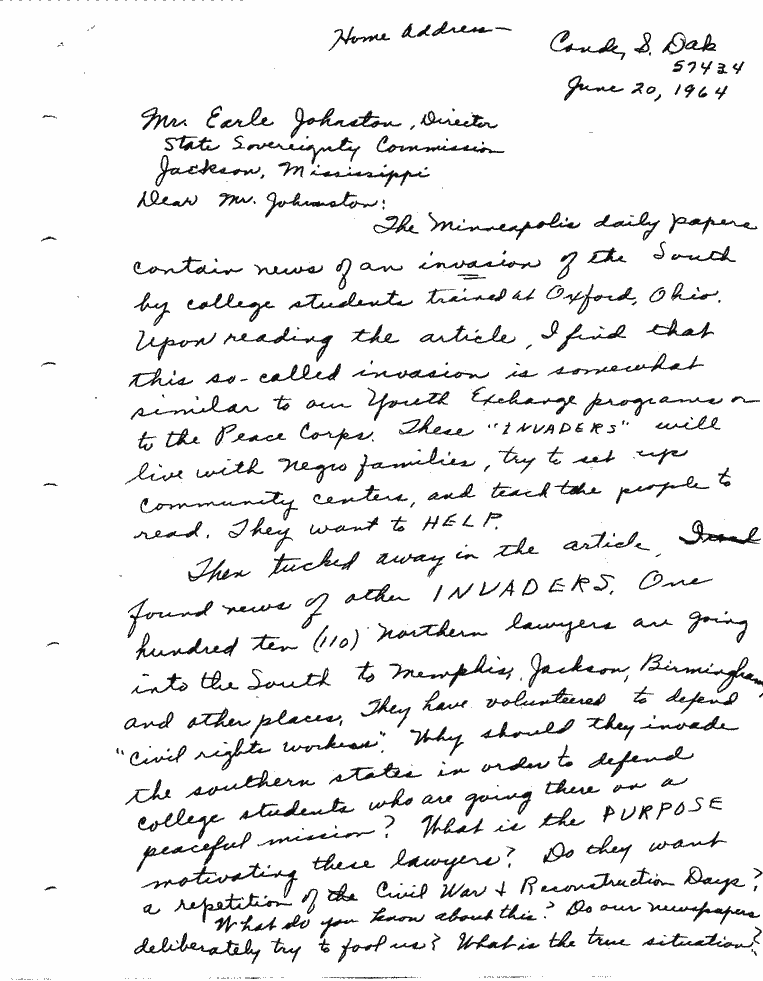 Home Address—
Conde, S. Dak
57434
June 20, 1964
Mr. Earle Johnston, Director
State Sovereignty Commission
Jackson, Mississippi
Dear Mr. Johnston:
The Minneapolis daily papers
contain news of an invasion of the South
by college students trained at Oxford, Ohio.
Upon reading the article, I find that
this so-called invasion is somewhat
similar to our Youth Exchange programs or
to the Peace Corps. These "INVADERS" will
live with Negro families, try to set up
community centers, and teach the people to
read. They want to HELP.
Then tucked away in the article,
found news of other INVADERS. One
hundred ten (110) Northern lawyers are going
into the South to Memphis, Jackson, Birmingham,
and other places. They have volunteered to defend
"civil rights workers". Why should they invade
the southern states in order to defend
college students who are going there on a
peaceful mission? What is the PURPOSE
motivating these lawyers? Do they want
a repetition of the Civil War & Reconstruction Days?
What do you know about this? Do our newspapers
deliberately try to fool us? What is the true situation?